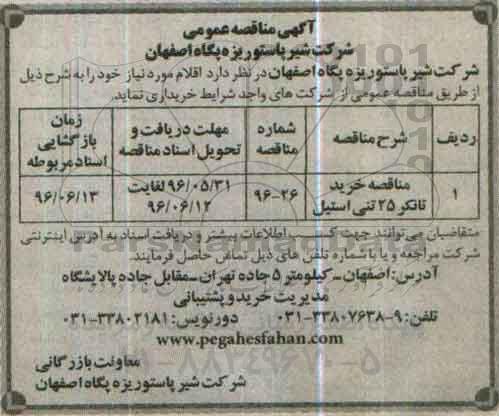 آگهی مناقصه عمومی
شرکت شیر پاستوریزه پگاه اصفهان
شرکت شیر پاستوریزه پگاه اصفهان در نظر دارد اقلام مورد نیاز خود را به شرح ذیل
از طریق مناقصه عمومی از شرکت های واجد شرایط خریداری نماید.
ردیف | شرح مناقصه | شماره مناقصه | مهلت دریافت و تحویل اسناد مناقصه | زمان بازگشایی اسناد مربوطه
۱ | مناقصه خرید تانکر ۲۵ تنی استیل | ۹۶-۲۶ | ۹۶/۰۵/۳۱ لغایت ۹۶/۰۶/۱۲ | ۹۶/۰۶/۱۳
متقاضیان می‌توانند جهت کسب اطلاعات بیشتر و دریافت اسناد به آدرس اینترنتی
شرکت مراجعه و یا با شماره تلفن های ذیل تماس حاصل فرمایند.
آدرس: اصفهان - کیلومتر ۵ جاده تهران - مقابل جاده پالایشگاه
مدیریت خرید و پشتیبانی
تلفن: ۹-۳۳۸۰۷۶۳۸-۰۳۱ دورنویس: ۳۳۸۰۲۱۸۱-۰۳۱
www.pegahesfahan.com
معاونت بازرگانی
شرکت شیر پاستوریزه پگاه اصفهان